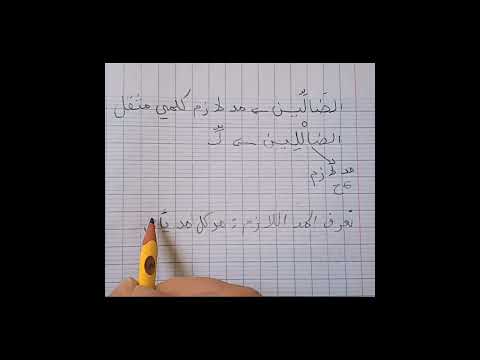 الضَالِّين ← مد لازم كلمي مثقل
الضالْلِين ← لِّ
مد لازم
6ح
نعرف المد اللازم: هو كل مد